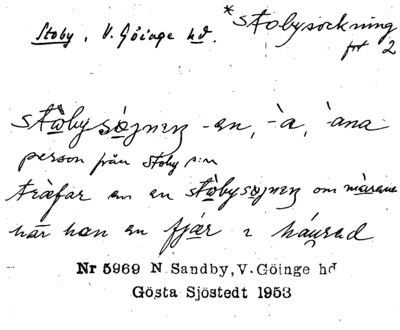 Stoby, V. Göinge hd.
*Stobysockning
frt 2
stωbysǫgneŋ -en, -a, -ana
person från Stoby sn
träfar en en stωbysǫgneŋ om
har han en fjär i
Nr 5969 N Sandby, V. Göinge hd
Gösta Sjöstedt 1953